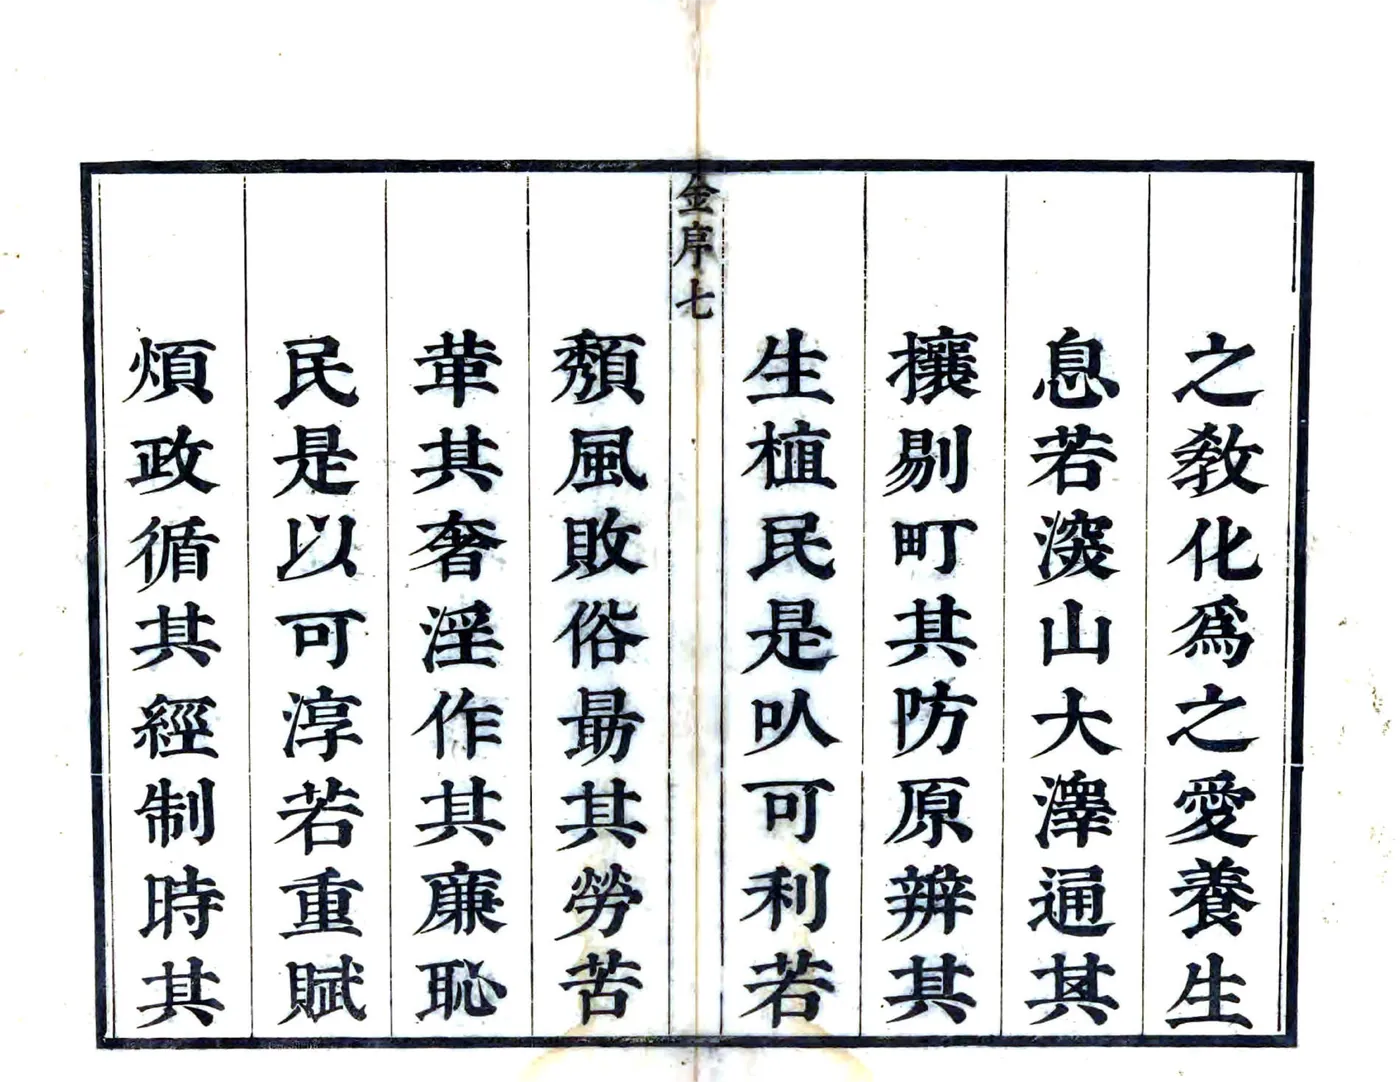 之敎化爲之愛養生
息若湥山大澤通其
攘剔町其防原辨其
生植民是㕥可利若
金序七
頽風敗俗勗其勞苦
革其奢淫作其廉恥
民是以可淳若重賦
煩政循其經制時其